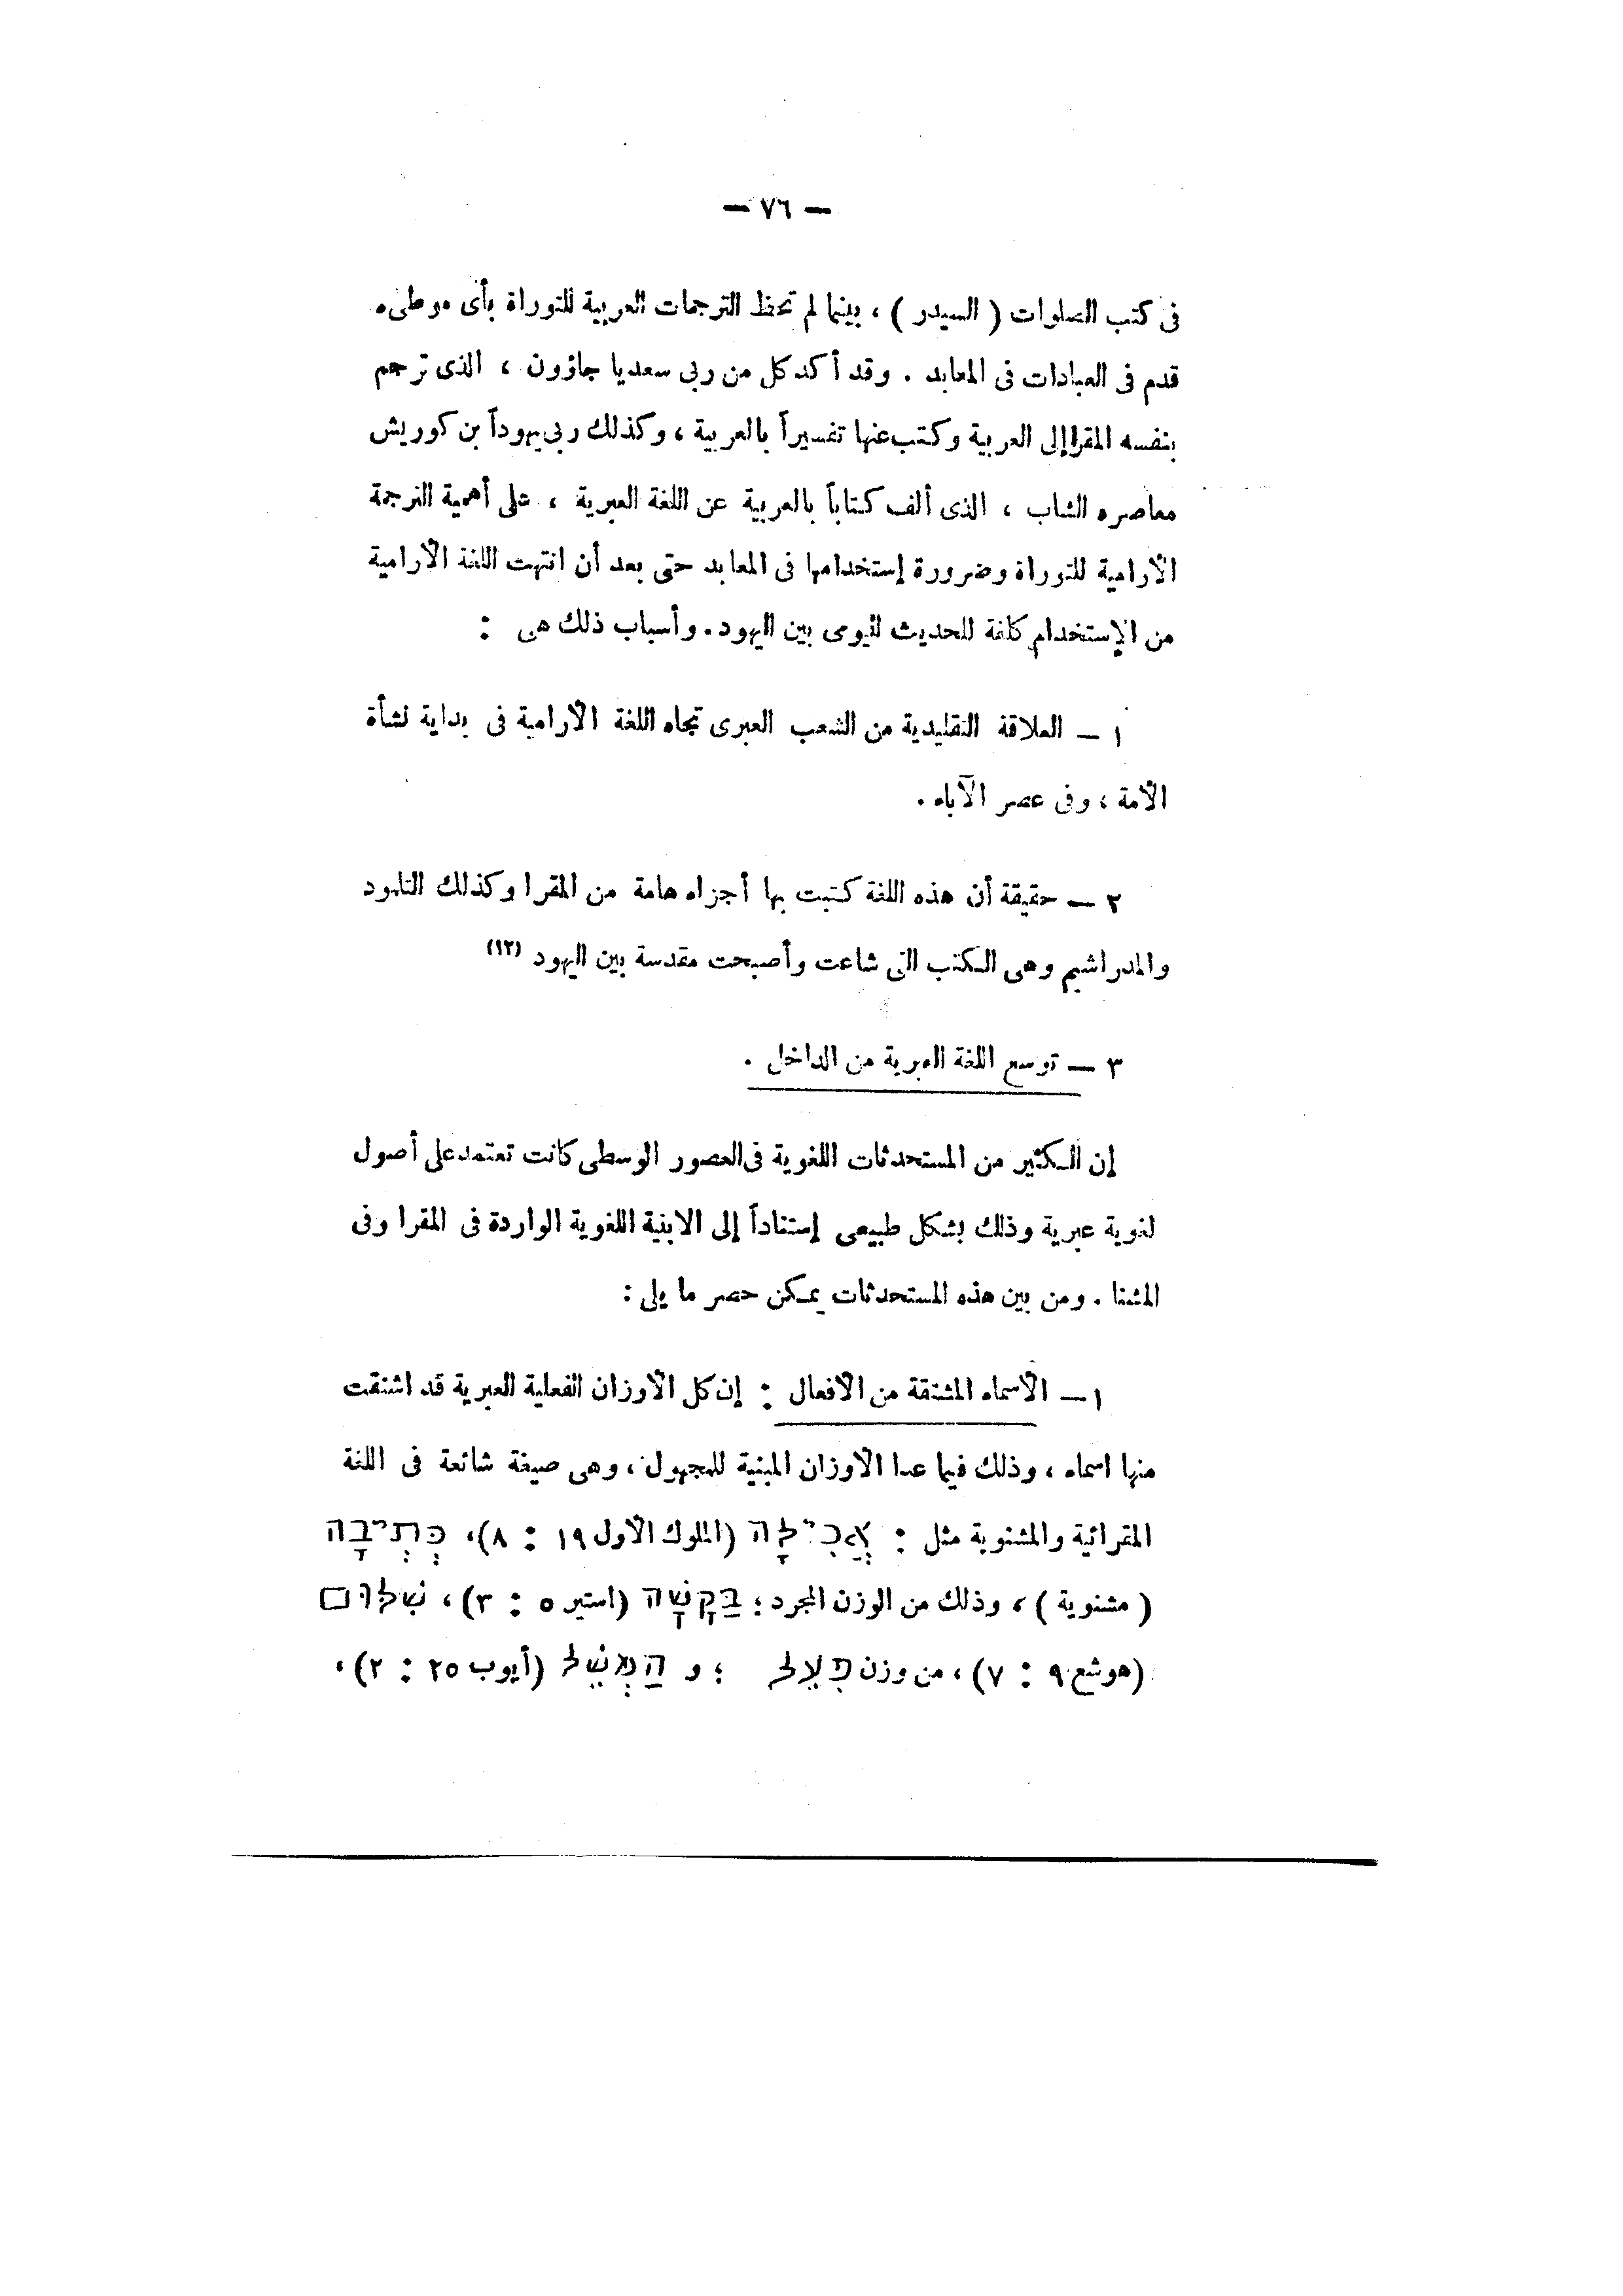 — ٧٦ —
فى كتب الصلوات ( السيدر ) ، بينما لم تحظ الترجمات العربية للتوراة بأى موطىء
قدم فى العبادات فى المعابد . وقد أكد كل من ربى سعديا جاؤون ، الذى ترجم
بنفسه المقرا إلى العربية وكتب عنها تفسيراً بالعربية ، وكذلك ربى يهودا بن كوريش
معاصره الشاب ، الذى ألف كتاباً بالعربية عن اللغة العبرية ، على أهمية الترجمة
الأرامية للتوراة وضرورة إستخدامها فى المعابد حتى بعد أن انتهت اللغة الأرامية
من الإستخدام كلغة للحديث اليومى بين اليهود . وأسباب ذلك هى :
١ — العلاقة التقليدية من الشعب العبرى تجاه اللغة الأرامية فى بداية نشأة
الأمة ، وفى عصر الآباء .
٢ — حقيقة أن هذه اللغة كتبت بها أجزاء هامة من المقرا وكذلك التلمود
والمدراشيم وهى الكتب التى شاعت وأصبحت مقدسة بين اليهود (١٢)
٣ — توسع اللغة العبرية من الداخل .
إن الكثير من المستحدثات اللغوية فى العصور الوسطى كانت تعتمد على أصول
لغوية عبرية وذلك بشكل طبيعى إستناداً إلى الابنية اللغوية الواردة فى المقرا وفى
المشنا . ومن بين هذه المستحدثات يمكن حصر ما يلى :
١ — الأسماء المشتقة من الافعال : إن كل الأوزان الفعلية العبرية قد اشتقت
منها اسماء ، وذلك فيما عدا الاوزان المبنية للمجهول ، وهى صيغة شائعة فى اللغة
المقرائية والمشنوية مثل : אֲכִילָה (الملوك الأول ١٩ : ٨)، כְּתִיבָה
( مشنوية ) ، وذلك من الوزن المجرد ؛ בַּקָּשָׁה (استير ٥ : ٣) ، שִׁלּוּם
(هوشع ٩ : ٧) ، من وزن פִּעֵל ؛ و הַמְשֵׁל (أيوب ٢٥ : ٢) ،